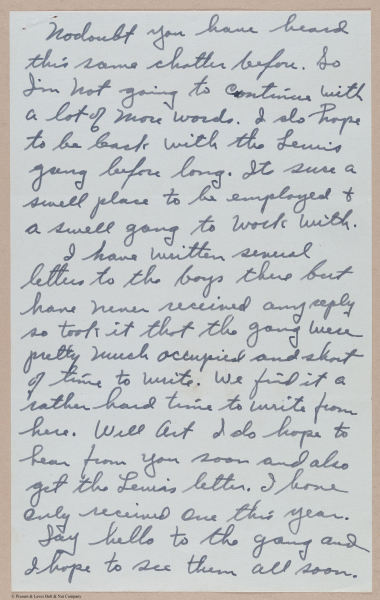 Nodoubt you have heard
this same chatter before. So
I'm not going to continue with
a lot of more words. I do hope
to be back with the Lewis
gang before long. Its sure a
swell place to be employed &
a swell gang to work with.
I have written several
letters to the boys there but
have never received any reply
so took it that the gang were
pretty much occupied and short
of time to write. We find it a
rather hard time to write from
here. Well Art I do hope to
hear from you soon and also
get the Lewis letter. I have
only received one this year.
Say hello to the gang and
I hope to see them all soon.
© Peanuts & Lewis Bolt & Nut Company